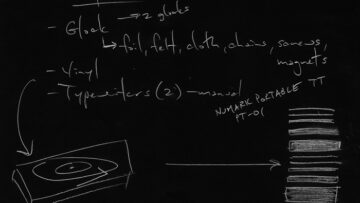 - Glock → 2 glocks
↳ foil, felt, cloth, chains, screws, magnets
- Vinyl
- Typewriters (2) - manual
NUMARK PORTABLE TT
PT-01